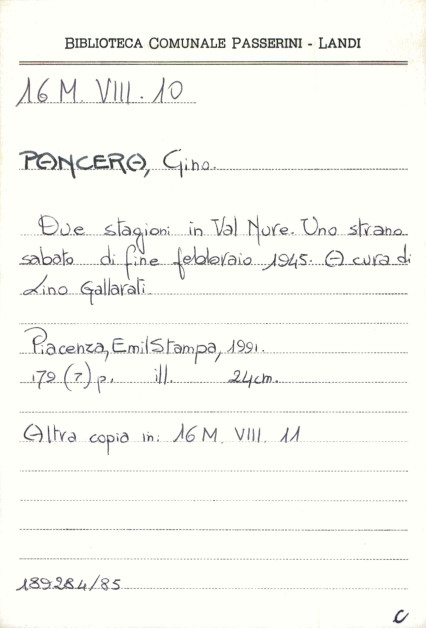 BIBLIOTECA COMUNALE PASSERINI - LANDI
16 M. VIII. 10
PANCERA, Gino.
Due stagioni in Val Nure. Uno strano
sabato di fine febbraio 1945. A cura di
Lino Gallarati.
Piacenza, EmilStampa, 1991.
179 (7) p. ill. 24cm.
Altra copia in: 16 M. VIII. 11
189284/85
C